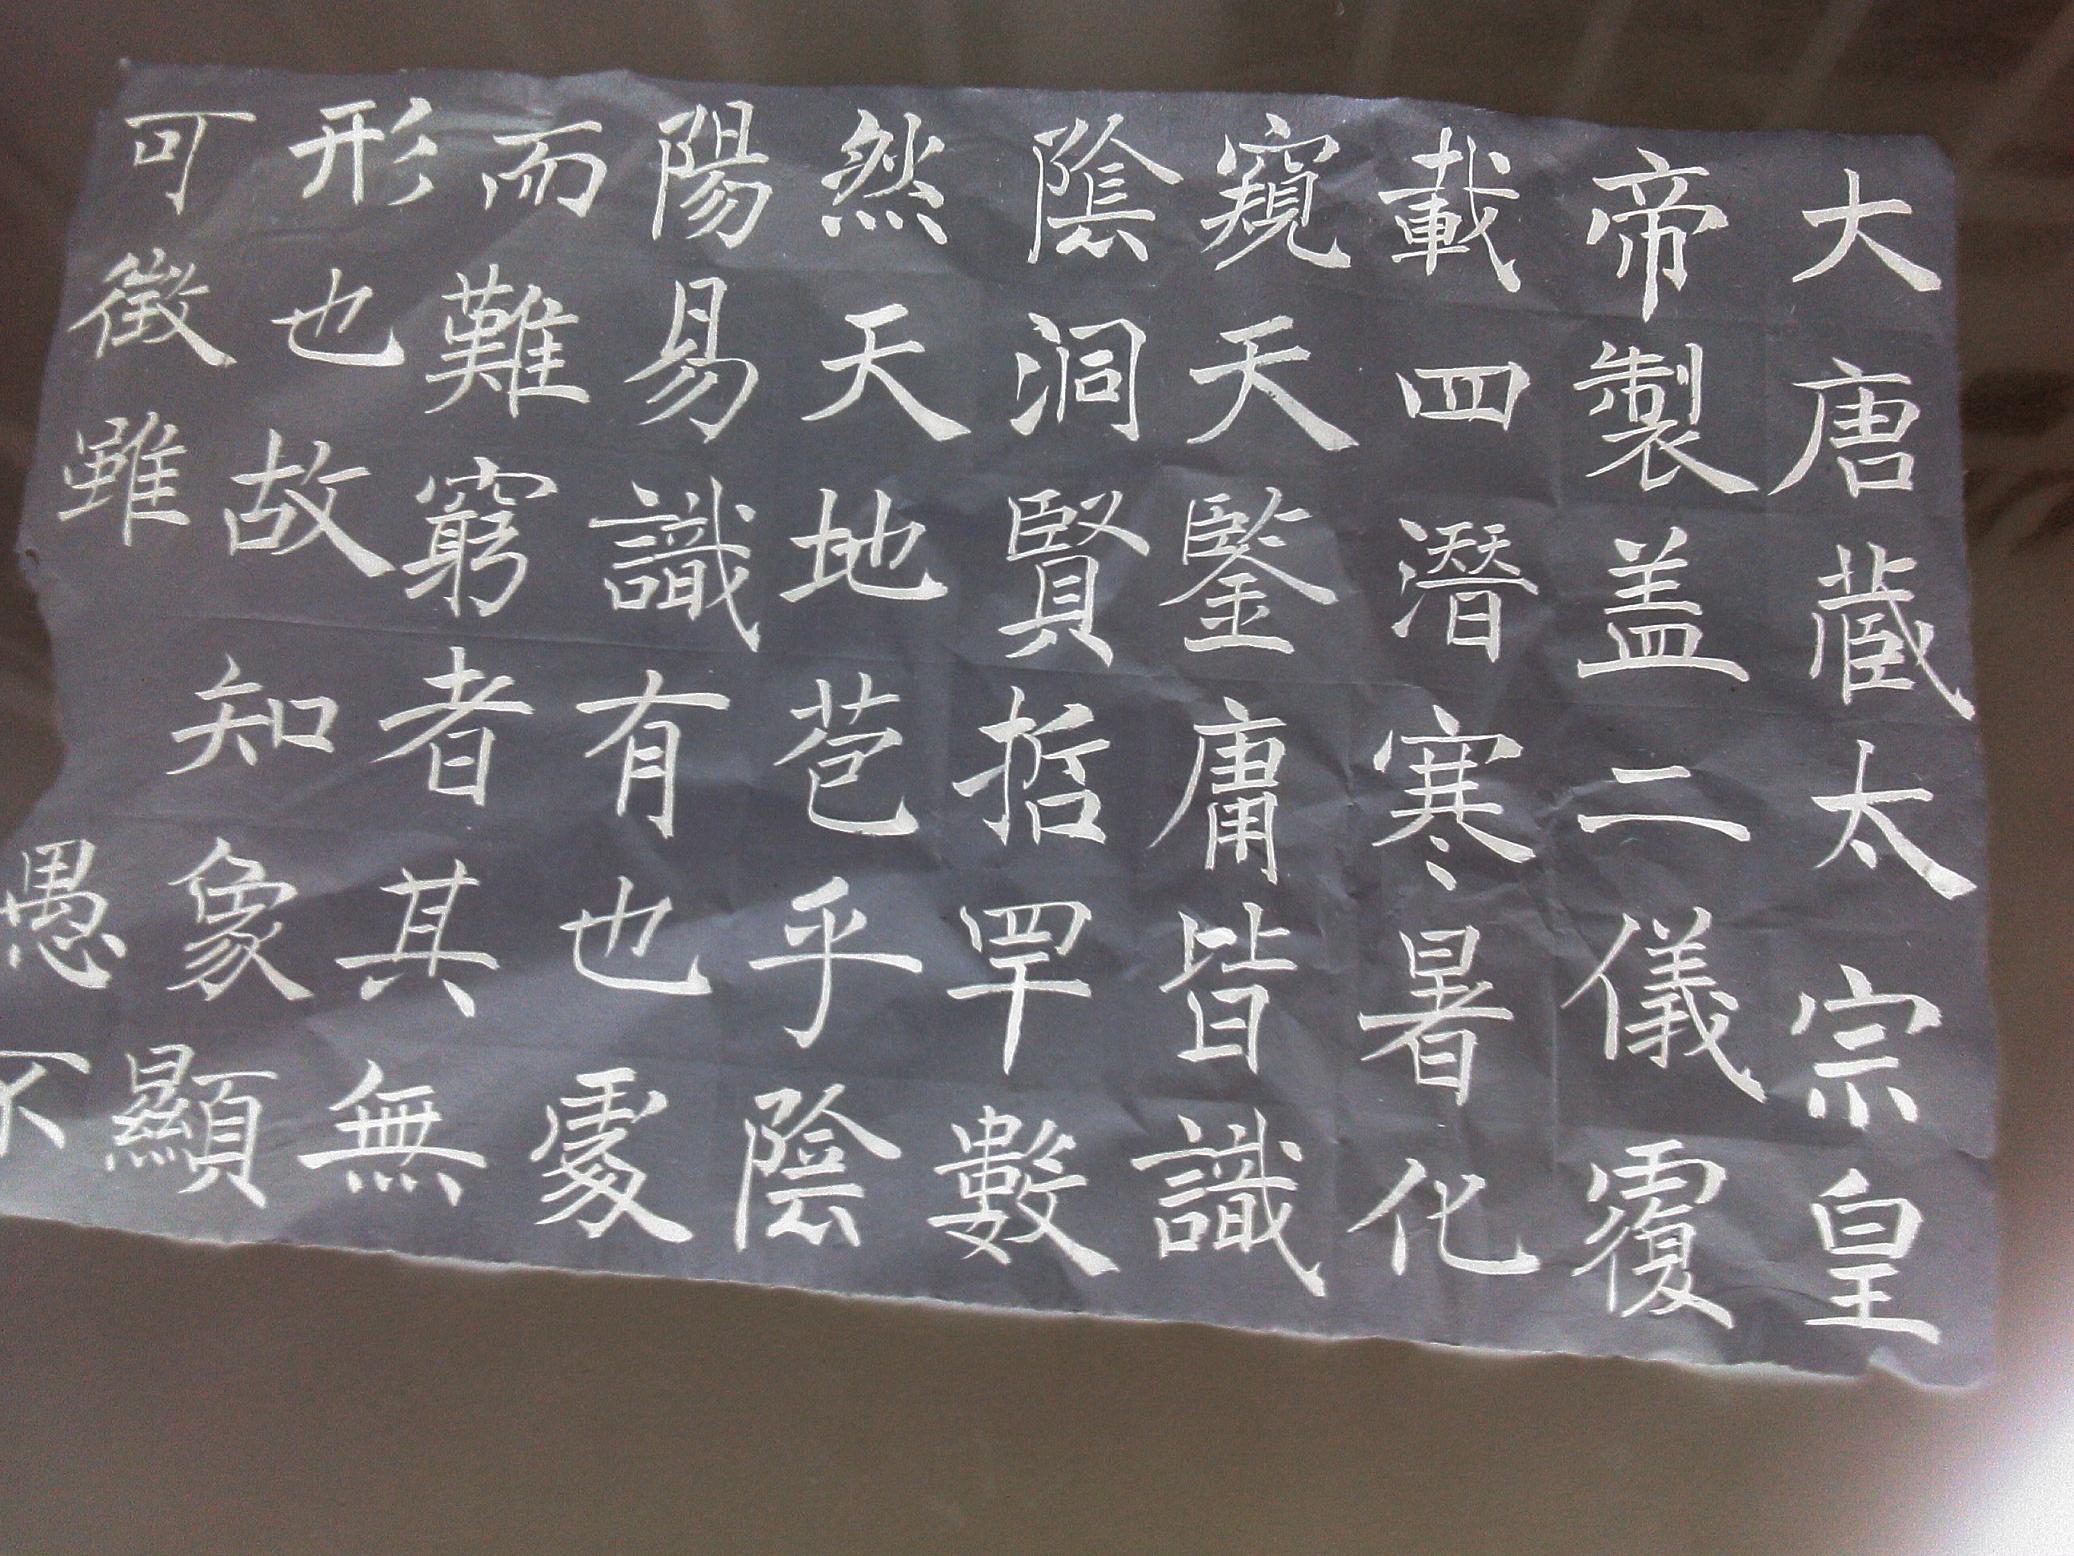 大唐蔵太宗皇
帝製盖二儀覆
載四潜寒暑化
窺天鑒庸皆識
陰洞賢哲罕數
然天地苞乎陰
陽易識有也處
而難窮者其無
形也故知象顯
可徵雖愚不